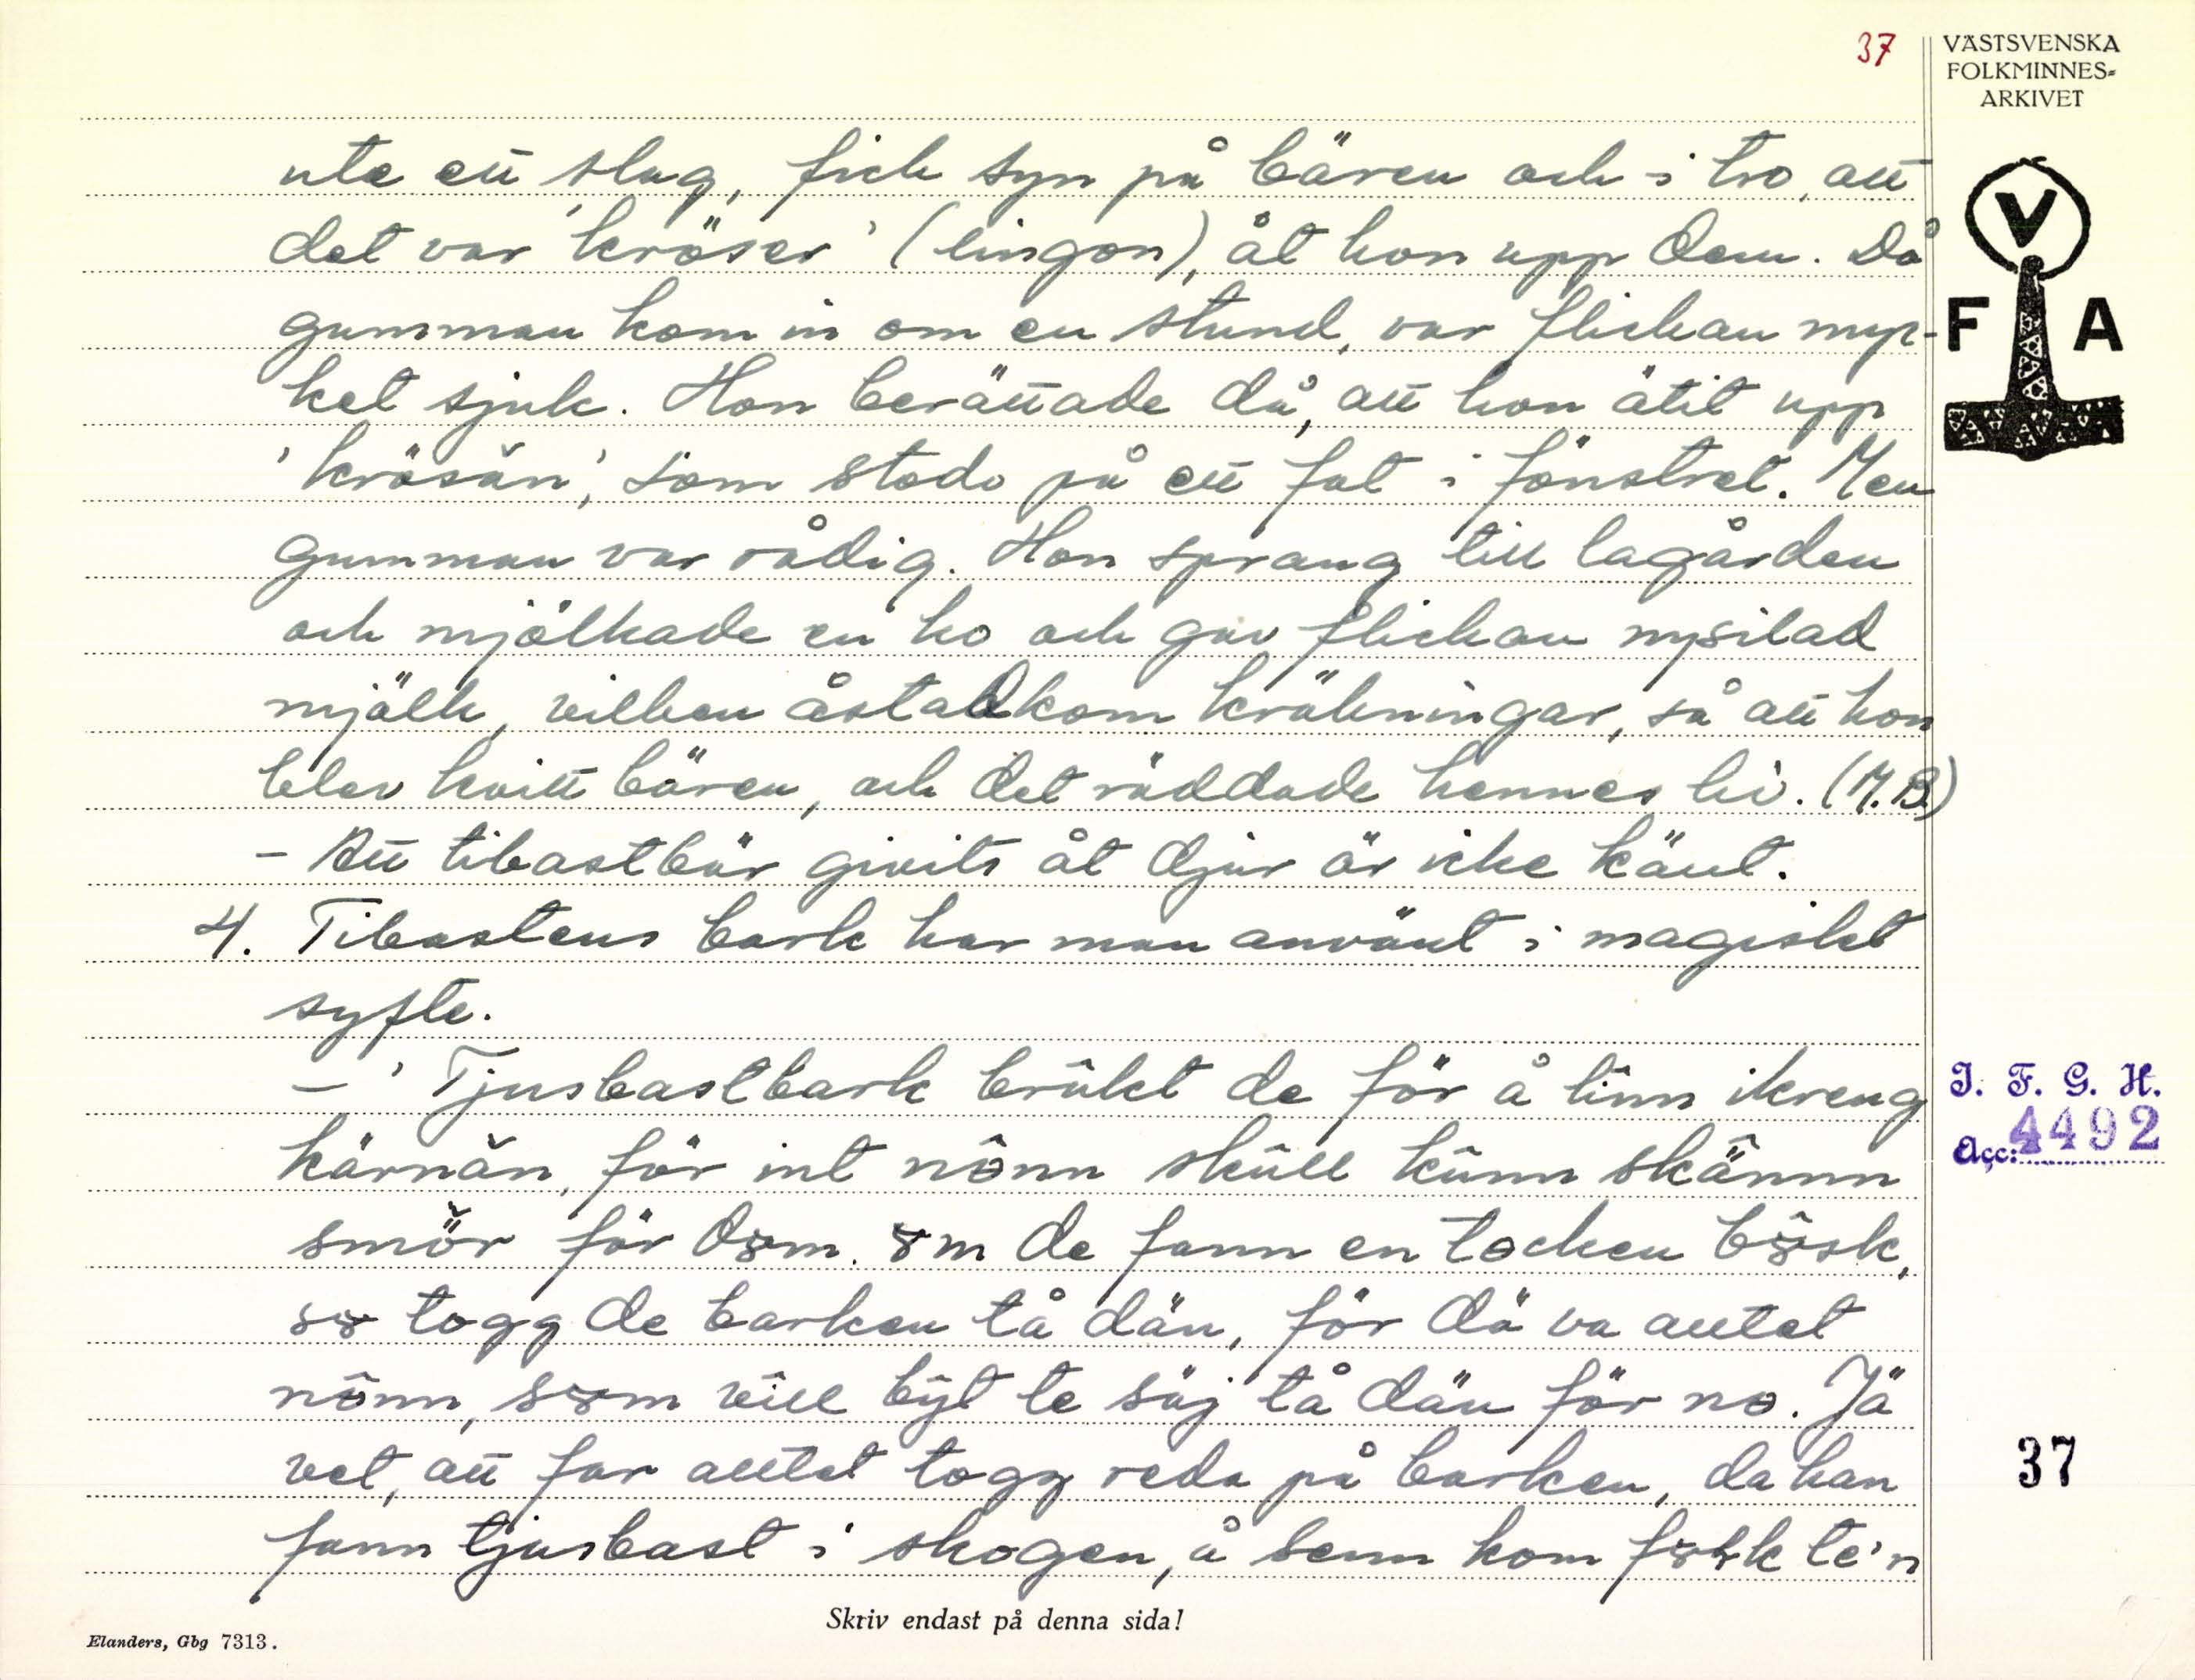 37
VÄSTSVENSKA
FOLKMINNES-
ARKIVET
ute ett slag, fick syn på bären och i tro, att
det var 'kröser' (lingon), åt hon upp dem. Då
gumman kom in om en stund, var flickan myc-
ket sjuk. Hon berättade då, att hon ätit upp
'krösän', som stodo på ett fat i fönstret. Men
gumman var rådig. Hon sprang till lagården
och mjölkade en ko och gav flickan nysilad
mjölk, vilken åstadkom kräkningar, så att hon
blev kvitt bären, och det räddade hennes liv. (M.B.)
- Att tibastbär givits åt djur är icke känt.
4. Tibastens bark har man använt i magiskt
syfte.
- 'Tjusbastbark brûkt de för å linn ikreng
kärnän, för int nônn skûll kûnn skännn
smör för dɤm. ɤm de fann en tocken bɤsk,
sɤ togg de barken tå dän, för dä va alltet
nônn, sɤm vîll bŷt te säj tå dän för no. Jä
vet, att far alltet togg reda på barken, da han
fann tjusbast i skogen, å senn kom fɤlk te'n
V
F A
I. F. G. H.
Acc: 4492
37
Skriv endast på denna sida!
Elanders, Gbg 7313.